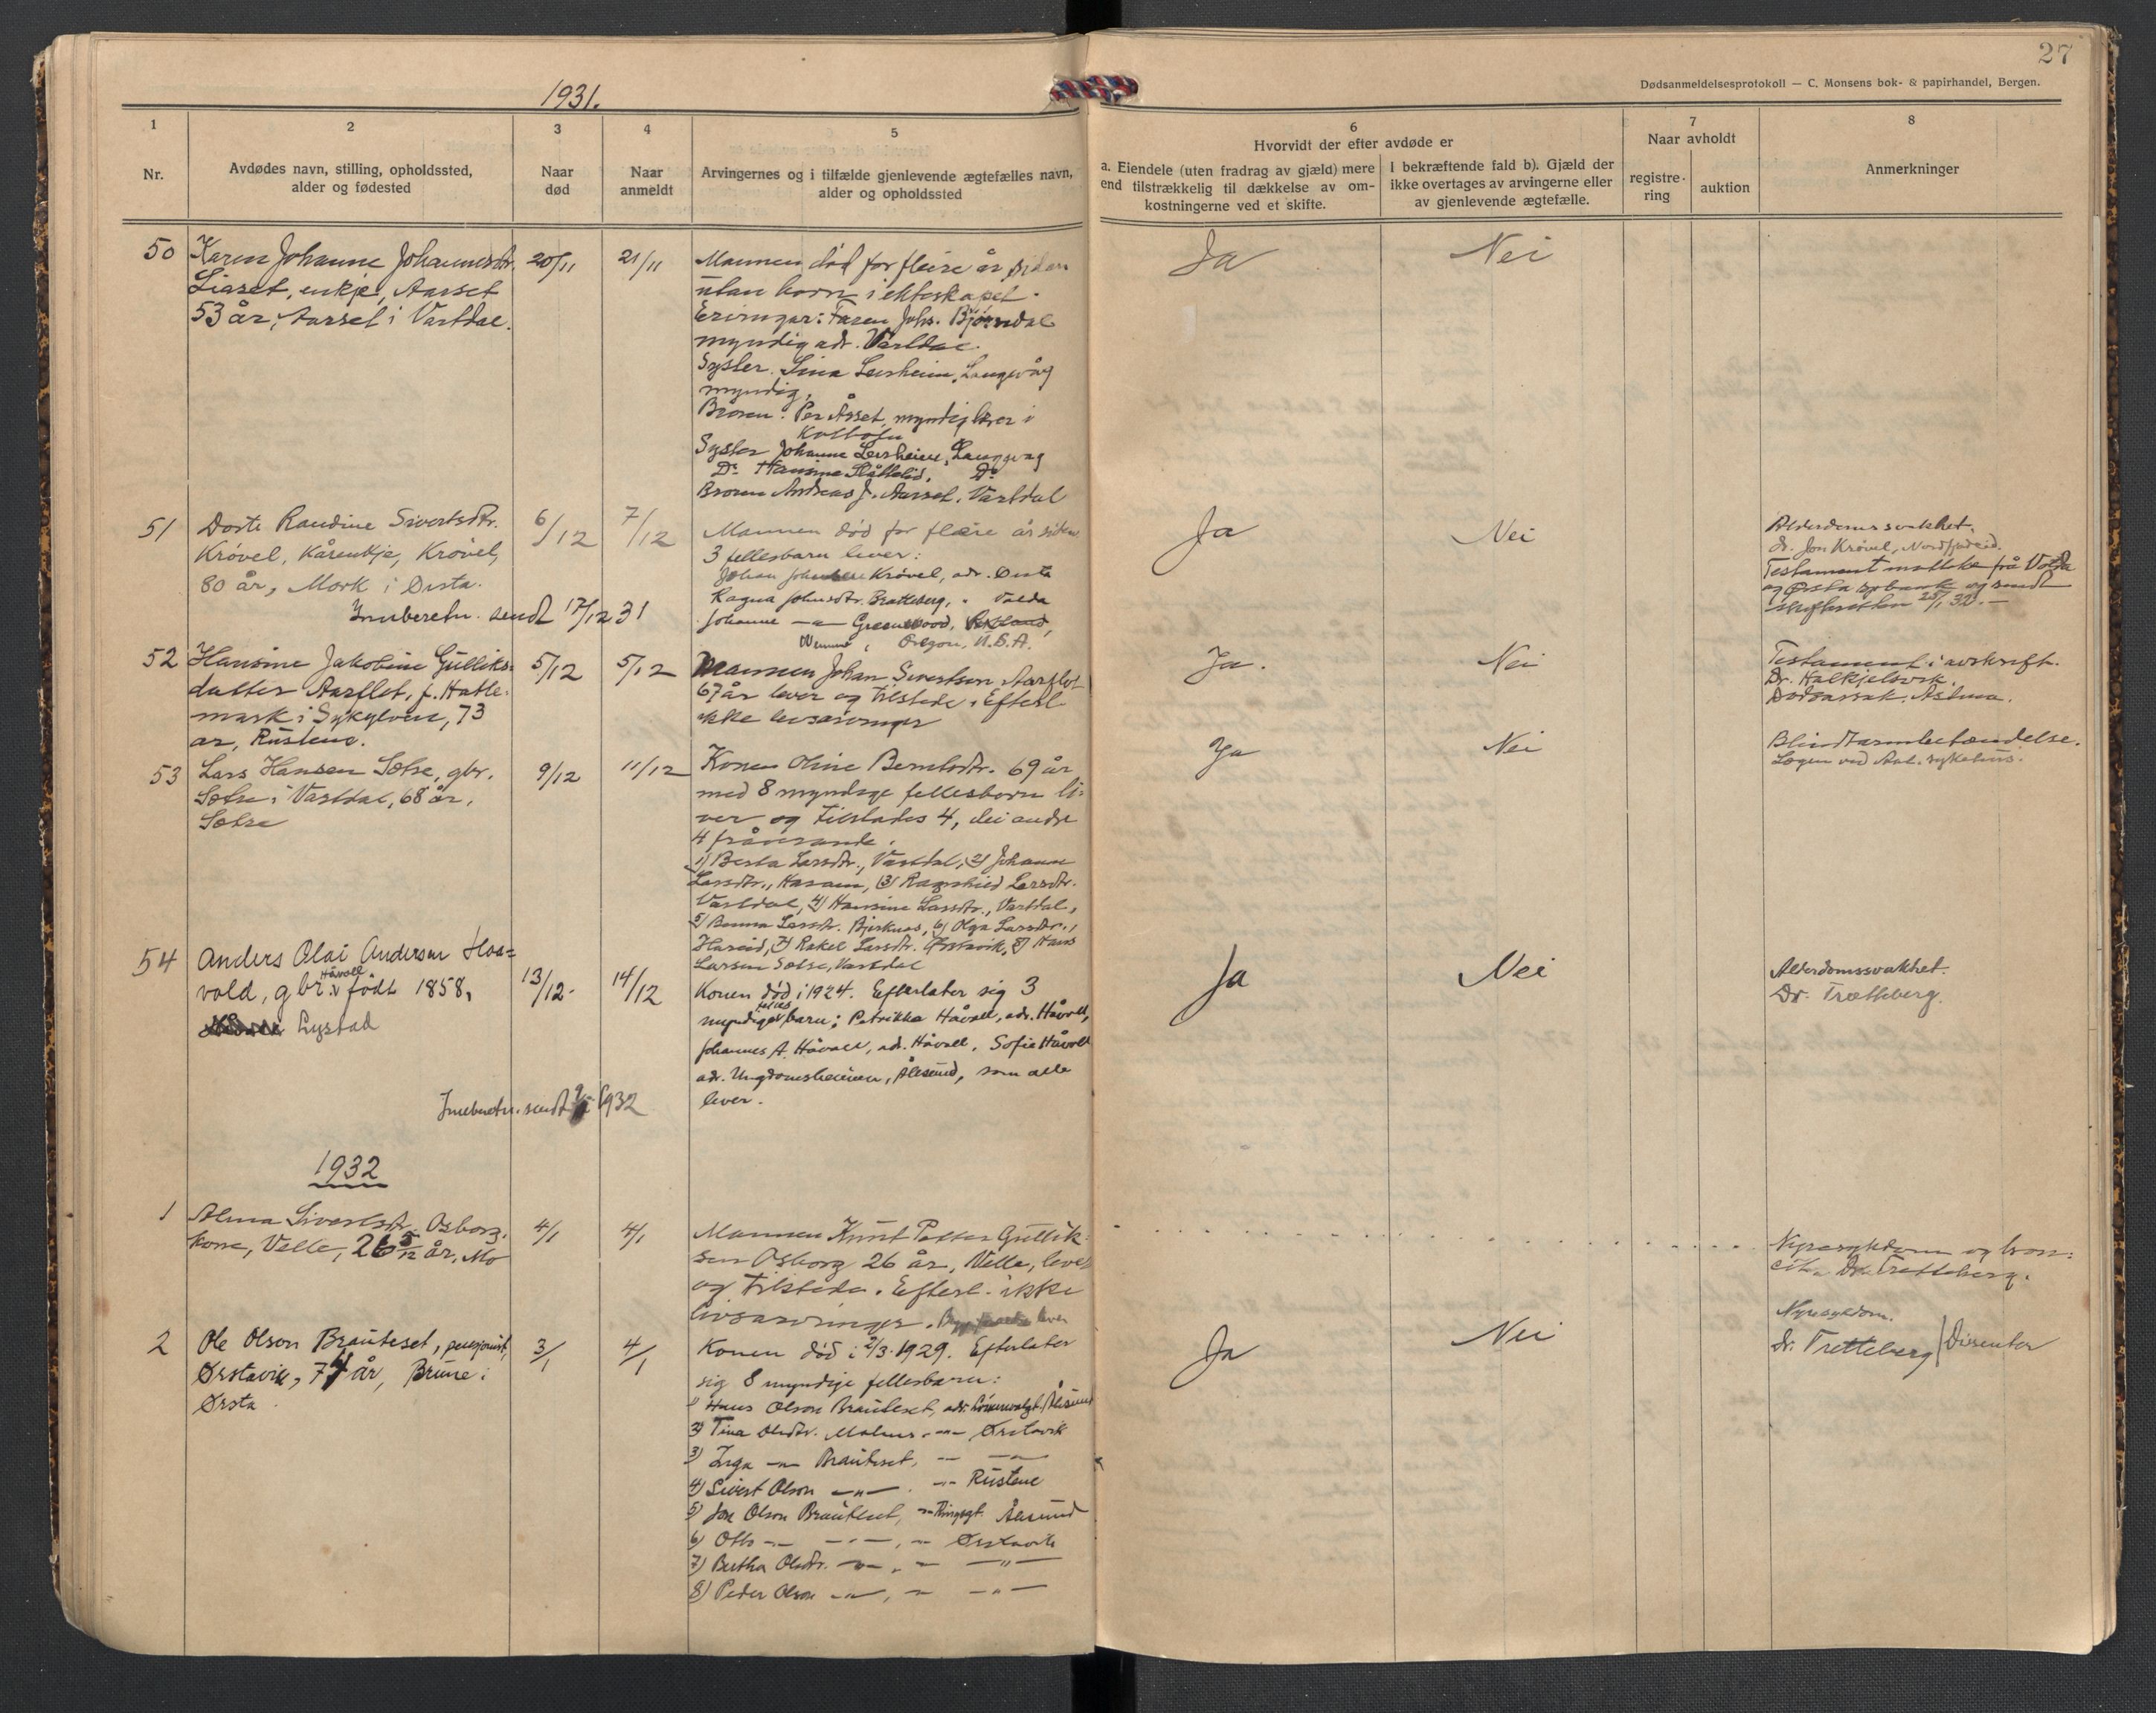 27
Dødsanmeldelsesprotokoll — C. Monsens bok- & papirhandel, Bergen.
1931.
1
Nr.
2
Avdødes navn, stilling, opholdssted,
alder og fødested
3
Naar
død
4
Naar
anmeldt
5
Arvingernes og i tilfælde gjenlevende ægtefælles navn,
alder og opholdssted
6
Hvorvidt der efter avdøde er
a. Eiendele (uten fradrag av gjæld) mere
end tilstrækkelig til dækkelse av om-
kostningerne ved et skifte.
I bekræftende fald b). Gjæld der
ikke overtages av arvingerne eller
av gjenlevende ægtefælle.
7
Naar avholdt
registre-
ring
auktion
8
Anmerkninger
50
Karen Johanne Johannesdtr.
Liaset, enkje, Aarset
53 år, Aarset i Vartdal.
20/11
21/11
Mannen død for fleire år sidan
utan born i ekteskapet.
Ervingar: Faren Johs. Bjørndal
myndig adr. Vartdal.
Syster. Lina Leirheim, Langevåg
myndig,
Broren: Per Åsset, myndig lærer i
Kolbofn
Syster Johanne Leirheim, Langevåg
Do Hansine Slåttelid, Do
Broren Andreas J. Aarset, Vartdal
Ja
Nei
51
Dorte Raudine Sivertsdtr.
Krøvel, kårenkje, Krøvel,
80 år, Mork i Ørsta.
Innberetn. sendt 17/12 31
6/12
7/12
Mannen død for fleire år siden
3 fellesbarn lever:
Johan Johnsen Krøvel, adr. Ørsta
Ragna Johnsdtr. Bratteberg, " Volda
Johanne —"— Greenwood,
Oregon, U.S.A.
Ja
Nei
Alderdomssvakhet.
dr. Jon Krøvel, Nordfjordeid.
Testament mottke frå Volda
og Ørsta spbank og sendt
skifteretten 25/1 32. —
52
Hansine Jakobine Gulliks-
datter Aarflot, f. Hatle-
mark i Sykylven, 73
år, Rustene.
5/12
5/12
Mannen Johan Sivertsen Aarflot
67 år lever og tilstede. Efterl.
ikke livsarvinger
Ja.
Nei
Testament i avskrift.
Dr. Kalkjelsvik.
Dødsårsak. Astma.
53
Lars Hansen Sætre, gbr.
Sætre i Vartdal, 68 år,
Sætre
9/12
11/12
Konen Oline Berntsdtr. 69 år
med 8 myndige fellesborn li-
ver og tilstades 4, dei andre
4 fråverande.
1) Berta Larsdtr., Vartdal, 2) Johanne
Larsdtr., Hasam, 3) Ragnhild Larsdtr.
Vartdal, 4) Hansine Larsdtr., Vartdal,
5) Benna Larsdtr. Bjerknes, 6) Olga Larsdtr.,
Hareid, 7) Rakel Larsdtr. Ørstavik, 8) Hans
Larsen Sætre, Vartdal
Ja
Nei
Blindtarmbetændelse.
Lægen ved Aal. sykehus.
54
Anders Olai Andersen Hoa-
vold, gbr. Håvoll født 1858,
Lystad
13/12.
14/12
Konen død i 1924. Efterlater sig 3
myndige felles barn: Petrikka Håvoll, adr. Håvoll,
Johannes A. Håvoll, adr. Håvoll, Sofie Håvoll
adr. Ungdomsheimen, Ålesund, som alle
lever.
Innberetn. sendt 1932
Ja
Nei
Alderdomssvakhet.
Dr. Trætteberg.
1932
1
Alma Sivertsdtr. Osborg,
kone, Velle, 26 5/12 år, Mo
4/1
4/1
Mannen Knut Petter Gullik-
sen Osborg 26 år, Velle, lever
og tilstede. Efterl. ikke
livsarvinger. lever
Nyresykdom og bron-
Dr. Trætteberg.
2
Ole Olson Brauteset, pensjonist,
Ørstavik, 74 år, Brune i
Ørsta.
3/1
4/1
Konen død i 2/3 1929. Efterlater
sig 8 myndige fellesbarn:
1) Hans Olson Brauteset, adr. Ålesund
2) Tina Olsdtr. Melnes —"— Ørstavik
3) Inga —"— Brauteset, —"— —"—
4) Sivert Olson —"— . —"— Rustene
5) Jon Olson Brauteset, —"— Ålesund
6) Otto —"— —"—, —"— Ørstavik
7) Bertha Olsdtr. —"— , —"— —"—
8) Peder Olson —"—, —"— —"—
Ja
Nei
Nyresykdom.
Dr. Trætteberg / Disenter